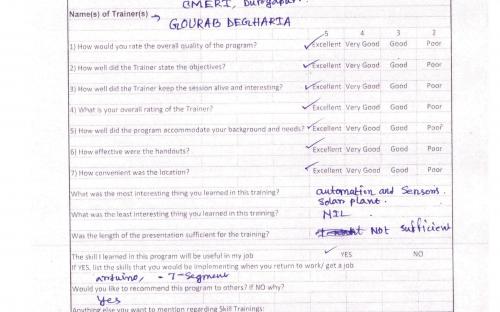 CMERI, Durgapur.
Name(s) of Trainer(s) → GOURAB DEGHARIA
5 4 3 2
1) How would you rate the overall quality of the program? ✓Excellent Very Good Good Poor
2) How well did the Trainer state the objectives? ✓Excellent Very Good Good Poor
3) How well did the Trainer keep the session alive and interesting? ✓Excellent Very Good Good Poor
4) What is your overall rating of the Trainer? ✓Excellent Very Good Good Poor
5) How well did the program accommodate your background and needs? ✓Excellent Very Good Good Poor
6) How effective were the handouts? ✓Excellent Very Good Good Poor
7) How convenient was the location? ✓Excellent Very Good Good Poor
What was the most interesting thing you learned in this training? automation and Sensors.
solar plant.
What was the least interesting thing you learned in this training? NIL.
Was the length of the presentation sufficient for the training? Not sufficient
The skill I learned in this program will be useful in my job ✓ YES NO
If YES, list the skills that you would be implementing when you return to work/ get a job
arduino, - 7-Segment
Would you like to recommend this program to others? if NO why?
Yes
Anything else you want to mention regarding Skill Trainings: